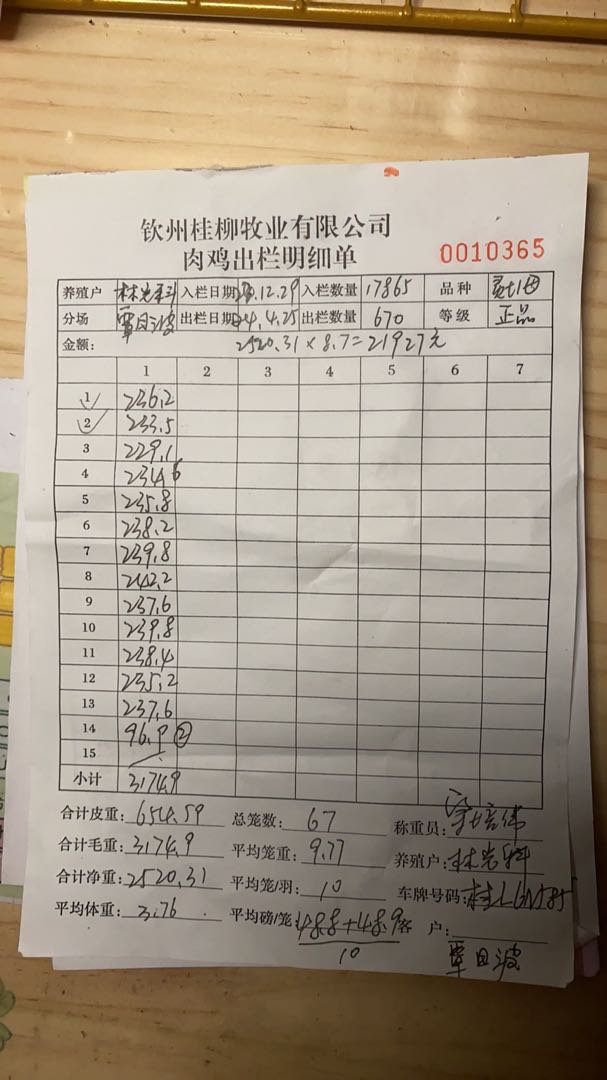 钦州桂柳牧业有限公司
肉鸡出栏明细单
0010365
养殖户 林 入栏日期 .12.29 入栏数量 17865 品种
分场 覃日波 出栏日期 24.4.25 出栏数量 670 等级 正品
金额: 2520.31×8.7=21927元
1 2 3 4 5 6 7
1 236.2
2 233.5
3 229.1
4 234.6
5 235.8
6 238.2
7 239.8
8 242.2
9 237.6
10 239.8
11 238.4
12 235.2
13 237.6
14 96.9 ②
15
小计 3174.9
合计皮重: 654.59 总笼数: 67 称重员: 伟
合计毛重: 3174.9 平均笼重: 9.77 养殖户: 林
合计净重: 2520.31 平均笼/羽: 10 车牌号码: 桂L
平均体重: 3.76 平均磅/笼: 48.8+48.9 客户:
10
覃日波